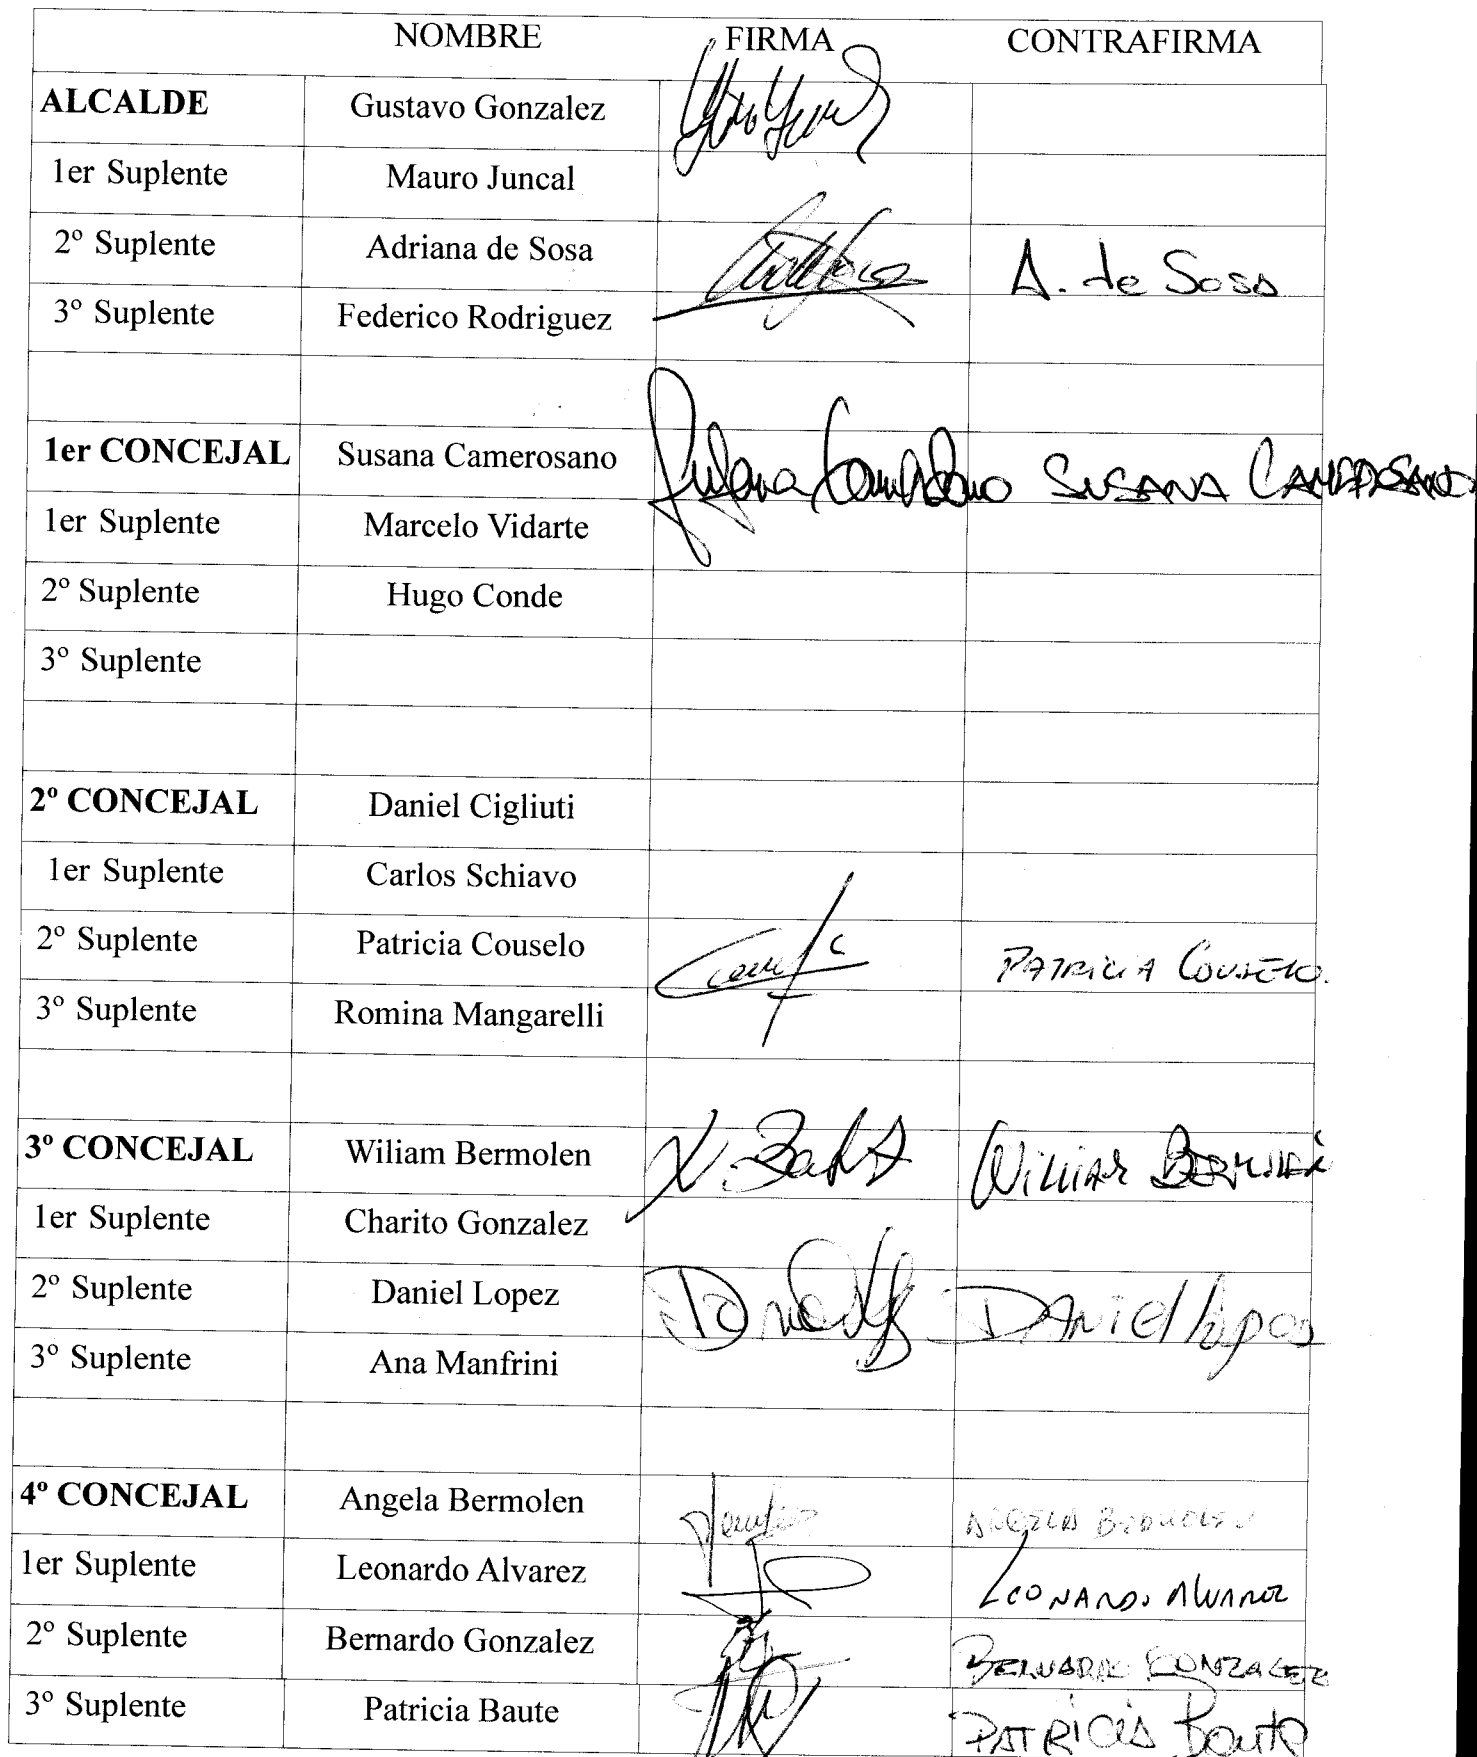 NOMBRE FIRMA CONTRAFIRMA
ALCALDE Gustavo Gonzalez
1er Suplente Mauro Juncal
2º Suplente Adriana de Sosa A. de Sosa
3º Suplente Federico Rodriguez
1er CONCEJAL Susana Camerosano Susana Camerosano SUSANA CAMEROSANO
1er Suplente Marcelo Vidarte
2º Suplente Hugo Conde
3º Suplente
2º CONCEJAL Daniel Cigliuti
1er Suplente Carlos Schiavo
2º Suplente Patricia Couselo PATRICIA COUSELO.
3º Suplente Romina Mangarelli
3º CONCEJAL Wiliam Bermolen WILLIAM BERMOLEN
1er Suplente Charito Gonzalez
2º Suplente Daniel Lopez DANiel Lopes
3º Suplente Ana Manfrini
4º CONCEJAL Angela Bermolen ANGELA BERMOLEN
1er Suplente Leonardo Alvarez LEONARDO ALVAREZ
2º Suplente Bernardo Gonzalez BERNARDO GONZALEZ
3º Suplente Patricia Baute PATRICIA Baute